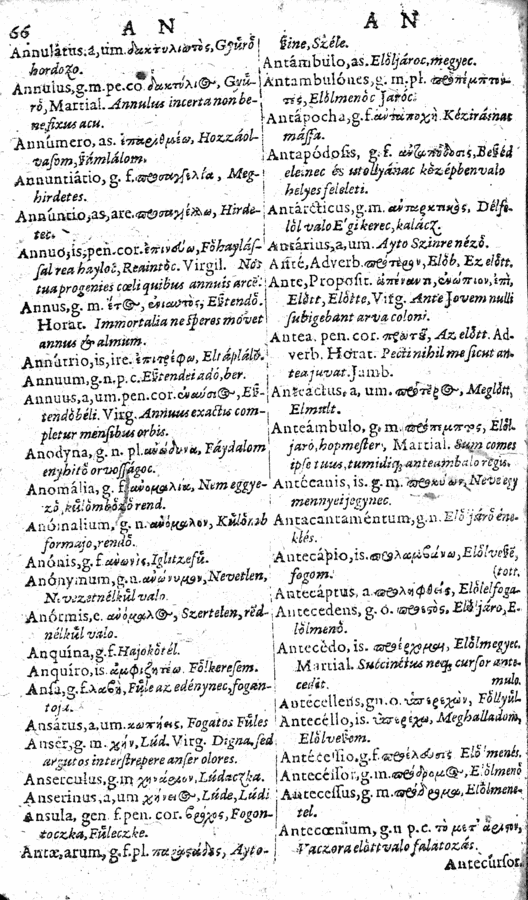 66 A N
Annulátus, a, um. δακτυλιωτὸς, Gyűrő
hordozo.
Annulus, g. m. pe. co. δακτύλι⊙, Gyű-
rő, Martial. Annulus incerta non be-
ne fixus acu.
Annúmero, as. ἐπαριθμέω, Hozzáol-
vasom, számlálom.
Annuntiátio, g. f. προσαγγελία, Meg-
hirdetes.
Annúntio, as, are. προσαγγέλλω, Hirde-
tec.
Annuo, is, pen. cor. ἐπινεύω, Fõhaylás-
sal rea hayloc, Reaintõc. Virgil. Nos
tua progenies cœli quibus annuis arcē.
Annus, g. m. ἔτ⊙, ἐνιαυτὸς, Eßtendõ.
Horat. Immortalia ne speres monet
annus & almum.
Annútrio, is, ire. ἐπιτρέφω, Eltáplálõ.
Annuum, g. n. p. c. Eßtendei adó, ber.
Annuus, a, um. pen. cor. ἐνιαύσι⊙, Eß-
tendõbéli. Virg. Annuus exactis com-
pletur mensibus orbis.
Anodyna, g. n. pl. ἀνώδυνα, Fáydalom
enyhitõ orvossagoc.
Anomália, g. f. ἀνομαλία, Nem eggye-
zõ, kűlõmbõzõ rend.
Anómalium, g. n. ἀνόμαλον, Kűlõmb
formajo, rendõ.
Anónis, g. f. ἀνωνὶς, Iglitzefű.
Anónymum, g. n. ἀνώνυμον, Nevetlen,
Nevezetnélkűl valo.
Anórmis, e. ἀνόμαλ⊙, Szertelen, rëd-
nélkűl valo.
Anquína, g. f. Hajokötél.
Anquíro, is. ἀμφιζητέω. Fölkeresem.
Ansa, g. f. λαβὴ, Fűle az edénynec, fogan-
toja.
Ansátus, a, um. Fogatos Fűles
Anser, g. m. χὴν, Lúd. Virg. Digna, sed
argutos interstrepere anser olores.
Anserculus, g. m χηνάριον, Lúdaczka.
Anserinus, a, um χήνει⊙, Lúdé, Lúdi
Ansula, gen. f. pen. cor. Fogon-
toczka, Fűleczke.
Antæ, arum, g. f. pl. παραστάδες, Ayto-
A N
ßine, Széle.
Antámbulo, as. Elõljároc, megyec.
Antambulónes, g. m. pl.
Elõlmenõc Jaróc.
Antápocha, g. f. ἀνταποχὴ. Kézirásnac
mássa.
Antapódosis, g. f. ἀνταπόδοσις, Beßéd
eleinec és utollyánac kõzépben valo
helyes feleleti.
Antárcticus, g. m. ἀνταρκτικὸς, Délfe-
lõl valo E'gi kerec, kalácz.
Antárius, a, um. Ayto Szinre nézõ.
Ante, Adverb. πρότερον, Elõb. Ez elõtt.
Ante, Proposit. ἀπέναντι, ἐνώπιον, ἐπὶ,
Elõtt, Elõtte, Virg. Ante Jovem nulli
subigebant arva coloni.
Antea. pen. cor. Az elõtt. Ad-
verb. Horat. Pecti nihil me sicut an-
tea juvat. Jamb.
Anteactus, a, um. πρότερ⊙, Meglõtt,
Elmult.
Anteámbulo, g. m. Elõl-
jaró, hopmester, Martial. Sum comes
ipse tuus, tumidiq; anteambalo regis.
Antécanis, is. g. m. προκύων, Neve egy
mennyei jegynec.
Antacantaméntum, g. n. Elõ járó éne-
klés.
Antecápio, is. προλαμβάνω, Elõlveßē,
fogom. (tott.
Antecáptus, a προληφθεὶς, Elõlelfoga-
Antecedens, g. o. Elõljáro, E-
lõlmenõ.
Antecédo, is. προέρχομαι, Elõlmegyec.
Martial. Succinctus neq; cursor ante-
cedat. mulo.
Antecellens, gn. o. ὑπερεχὼν, Föllyűl-
Antecéllo, is. ὑπερέχω, Meghalladom,
Elõlveßem.
Antécessio, g. f. προέλευσις Elõlmenés.
Antecéssor, g. m. πρόδρομ⊙, Elõlmenõ
Antecessus, g. m. πρόδρομ⊙, Elõlmene-
tel.
Antecœnium, g. n p. c.
Vaczora elõtt valo falatozás.
Antecursor.